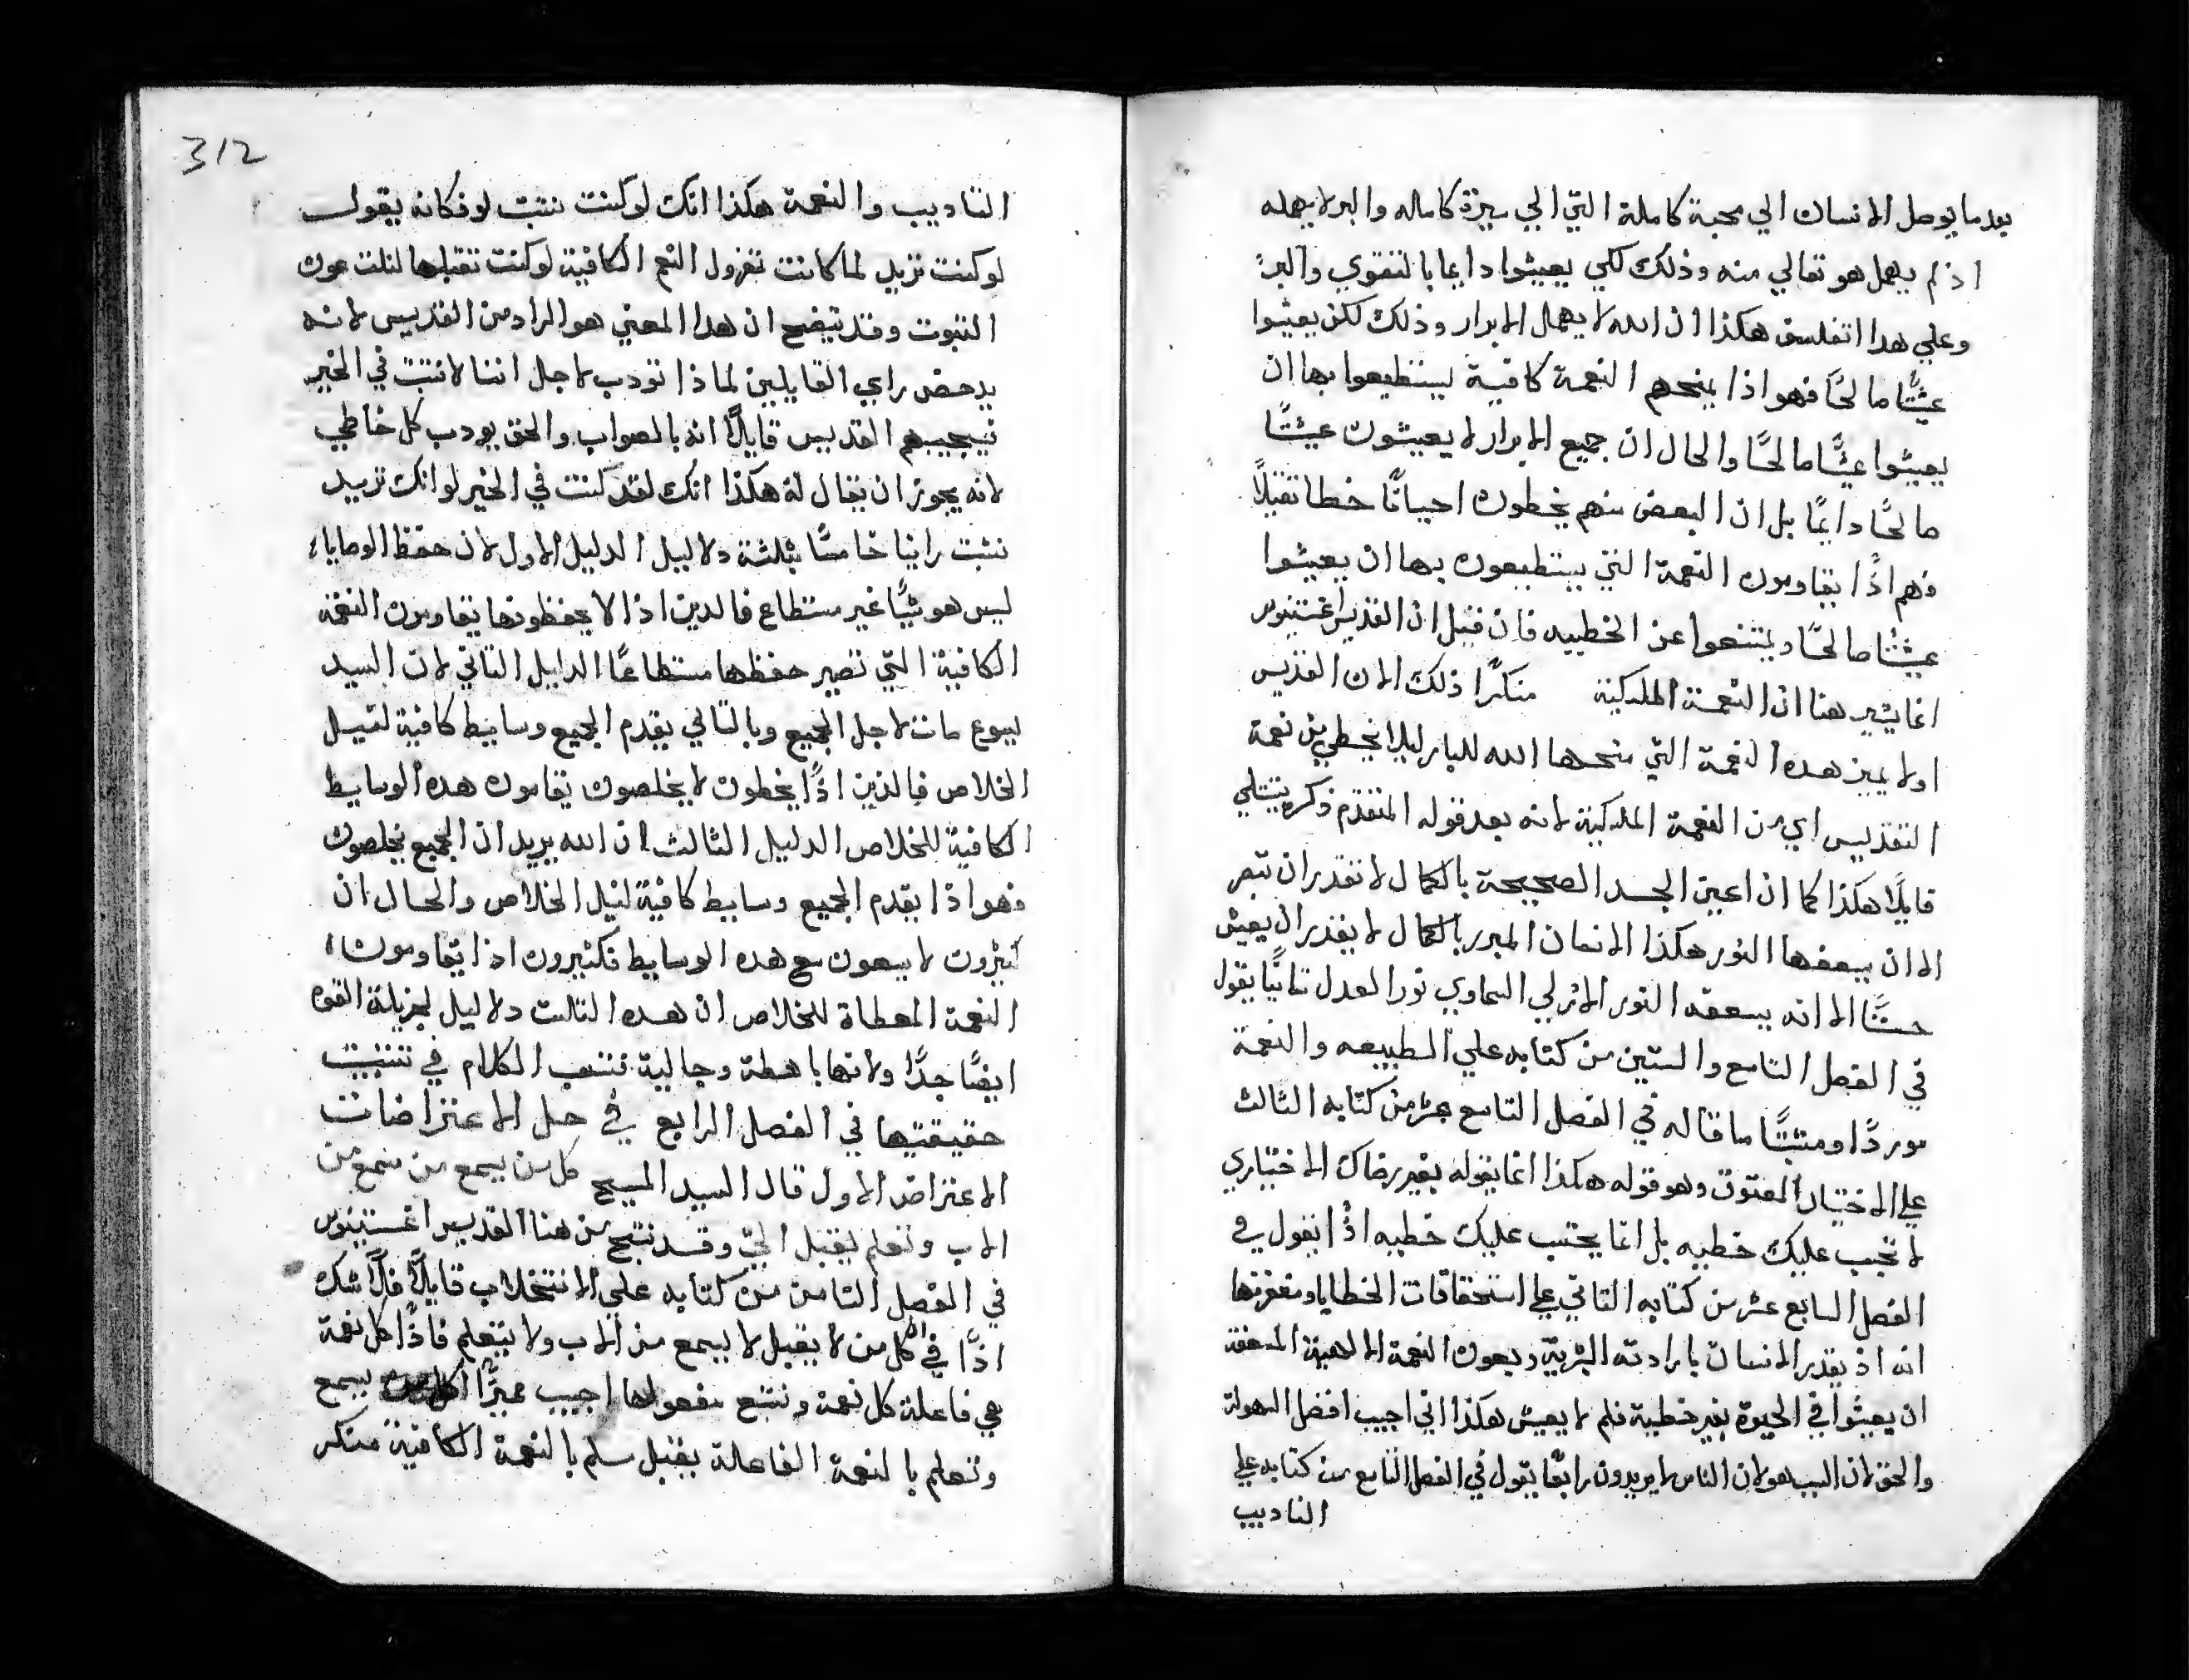 بعدما يوصل الانسان الي محبة كاملة التي الي سيرة كامله والبر لا يهمله
اذ لم يهمل هو تعالي منه وذلك لكي يعيشوا دايما بالتقوي والبر:
وعلي هدا اتفلسف هكذا ان الله لا يهمل الابرار وذلك لكن يعيشوا
عيشًا صالحًا فهو اذا يمنحهم النعمة كافية ليستطيعوا بها ان
يعيشوا عيشًا صالحًا والحال ان جميع الابرار لا يعيشون عيشًا
صالحًا دايمًا بل ان البعض منهم يخطون احيانًا خطا ثقيلًا
فهم اذًا يقاومون النعمة التي يستطيعون بها ان يعيشوا
عيشًا صالحًا ويمتنعوا عن الخطييه فان قيل ان القديس اغستينوس
انما يشير هنا ان النعمة الملكية منكرًا ذلك الان القديس
اولا يميز هده النعمة التي منحها الله للبار ليلا يخطي من نعمة
التقديس اي من النعمة الملكية لانه بعد قوله المتقدم ذكره يتلي
قايلًا هكذا كما ان اعين الجسد الصحيحة بالكمال لا تقدر ان تبصر
الا ان يسعفها النور هكذا الانسان المبرر بالكمال لا يقدر ان يعيش
حسنًا الا انه يسعفه النور الازلي السماوي نور العدل ثانيًا يقول
في الفصل التاسع والستين من كتابه علي الطبيعه والنعمة
موردًا ومثبتًا ما قاله في الفصل التاسع عشر من كتابه الثالث
علي الاختيار المعتوق وهو قوله هكذا انما يقوله بغير رضاك الاختياري
لا تحسب عليك خطيه بل انما يحتسب عليك خطيه اذًا يقول في
الفصل السابع عشر من كتابه الثاني علي استحقاقات الخطايا ومغفرتها
انه اذ يقدر الانسان بارادته البشرية وبعون النعمة الالاهية المسعفة
ان يعيشوا في الحيوة بغير خطية فلم لا يعيش هكذا اني اجيب افضل السهولة
والحق لان السبب هو لان الناس لا يريدون رابعًا يقول في الفصل التاسع من كتابه علي
التاديب
312
التاديب والنعمة هكذا انك لو كنت تثبت لو فكانه يقول
لو كنت تريد لما كانت تعزول النعم الكافية لو كنت تقبلها لنلت عون
الثبوت وقد يتضح ان هدا المعني هو المراد من القديس لانه
يدحض راي القايلين لماذا تودب لاجل اننا لا نثبت في الخير
فيجيبهم القديس قايلًا انه بالصواب والحق يودب كل خاطي
لانه يجوز ان يقال له هكذا انك لقد كنت في الخير لو انك تريد
نثبت راينا خامسًا بثلثة دلاليل الدليل الاول لان حفظ الوصايا
ليس هو شيًا غير مستطاع فالدين اذا لا يحفظونها يقاومون النعمة
الكافية التي تصير حفظها مستطاعًا الدليل الثاني لان السيد
يسوع مات لاجل الجميع وبالتالي يقدم الجميع وسايط كافية لنيل
الخلاص فالذين اذًا يخطون لا يخلصون يقامون هده الوسايط
الكافية للخلاص الدليل الثالث ان الله يريد ان الجميع يخلصون
فهو اذا يقدم الجميع وسايط كافية لنيل الخلاص والحال ان
كثيرون لا يسعون مع هده الوسايط فكثيرون اذا يقاومون
النعمة المعطاة للخلاص ان هده الثالث دلاليل لجزيلة القوه
ايضًا جدًا ولانها باهظة وجالية فنسهب الكلام في تثبيت
حقيقتها في الفصل الرابع في حل الاعتراضات
الاعتراض الاول قال السيد المسيح كل من يسمع من سمع من
الاب وتعلم يقبل اليّ وقد نتج من هنا القديس اغستينوس
في الفصل الثامن من كتابه علي الانتخاب قايلًا فلا شك
اذًا في ان كل من لا يقبل لا يسمع من الاب ولا يتعلم فاذًا كل نعمة
هي فاعلة كل نعمة وتتبع مفعولها اجيب مميزًا يسمع
وتعلم بالنعمة الفاعلة يقبل سلم بالنعمة الكافية منكر